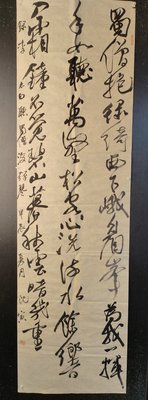 蜀僧抱綠綺西下峨眉峯為我一揮
手如聽萬壑松客心洗流水餘響
入霜鐘不覺碧山暮秋雲暗幾重
錄李太白聽蜀僧濬彈琴 甲辰夏月 沈寅